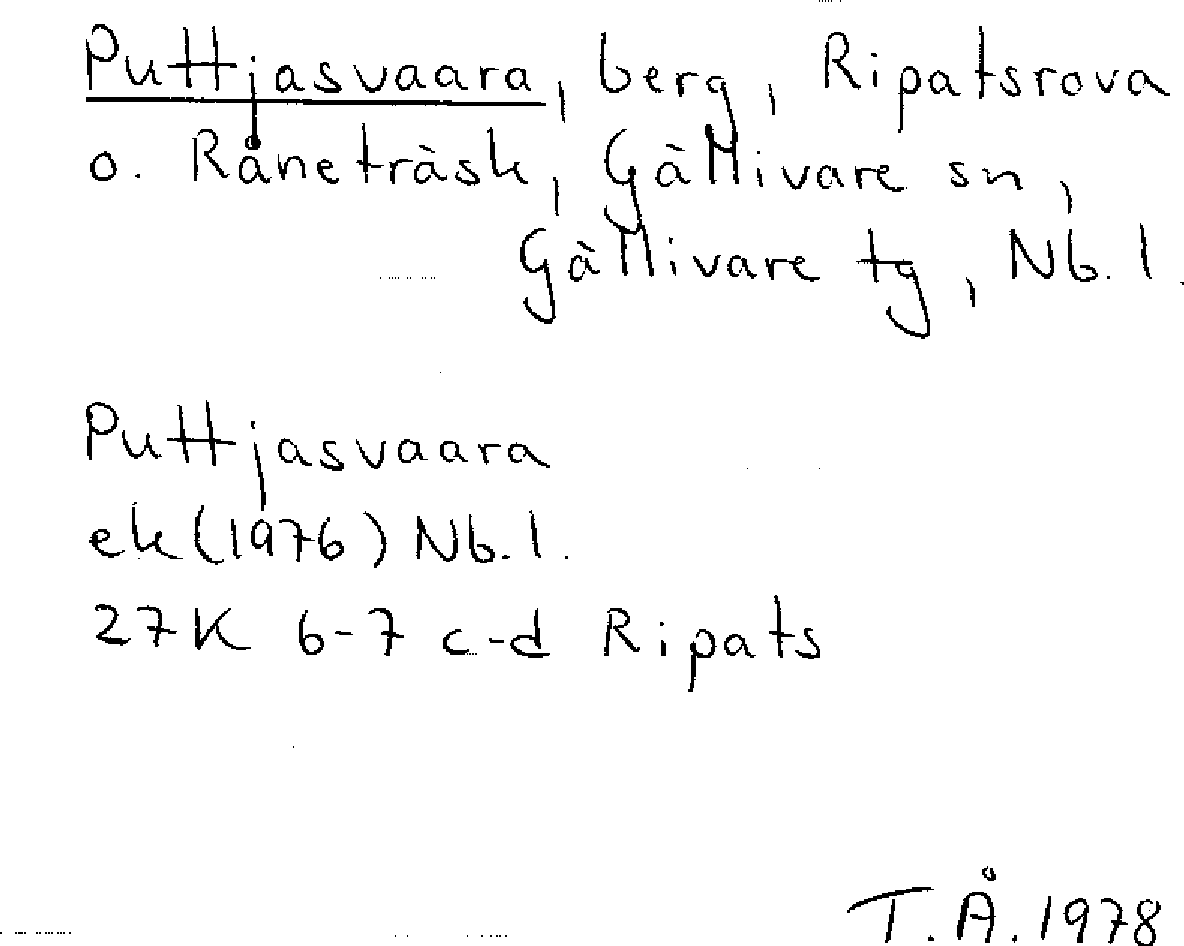 Puttjasvaara, berg, Ripatsrova
o. Råneträsk, Gällivare sn,
Gällivare tg, Nb. l.
Puttjasvaara
ek (1976) Nb. l.
27K 6-7 c-d Ripats
T.Å. 1978